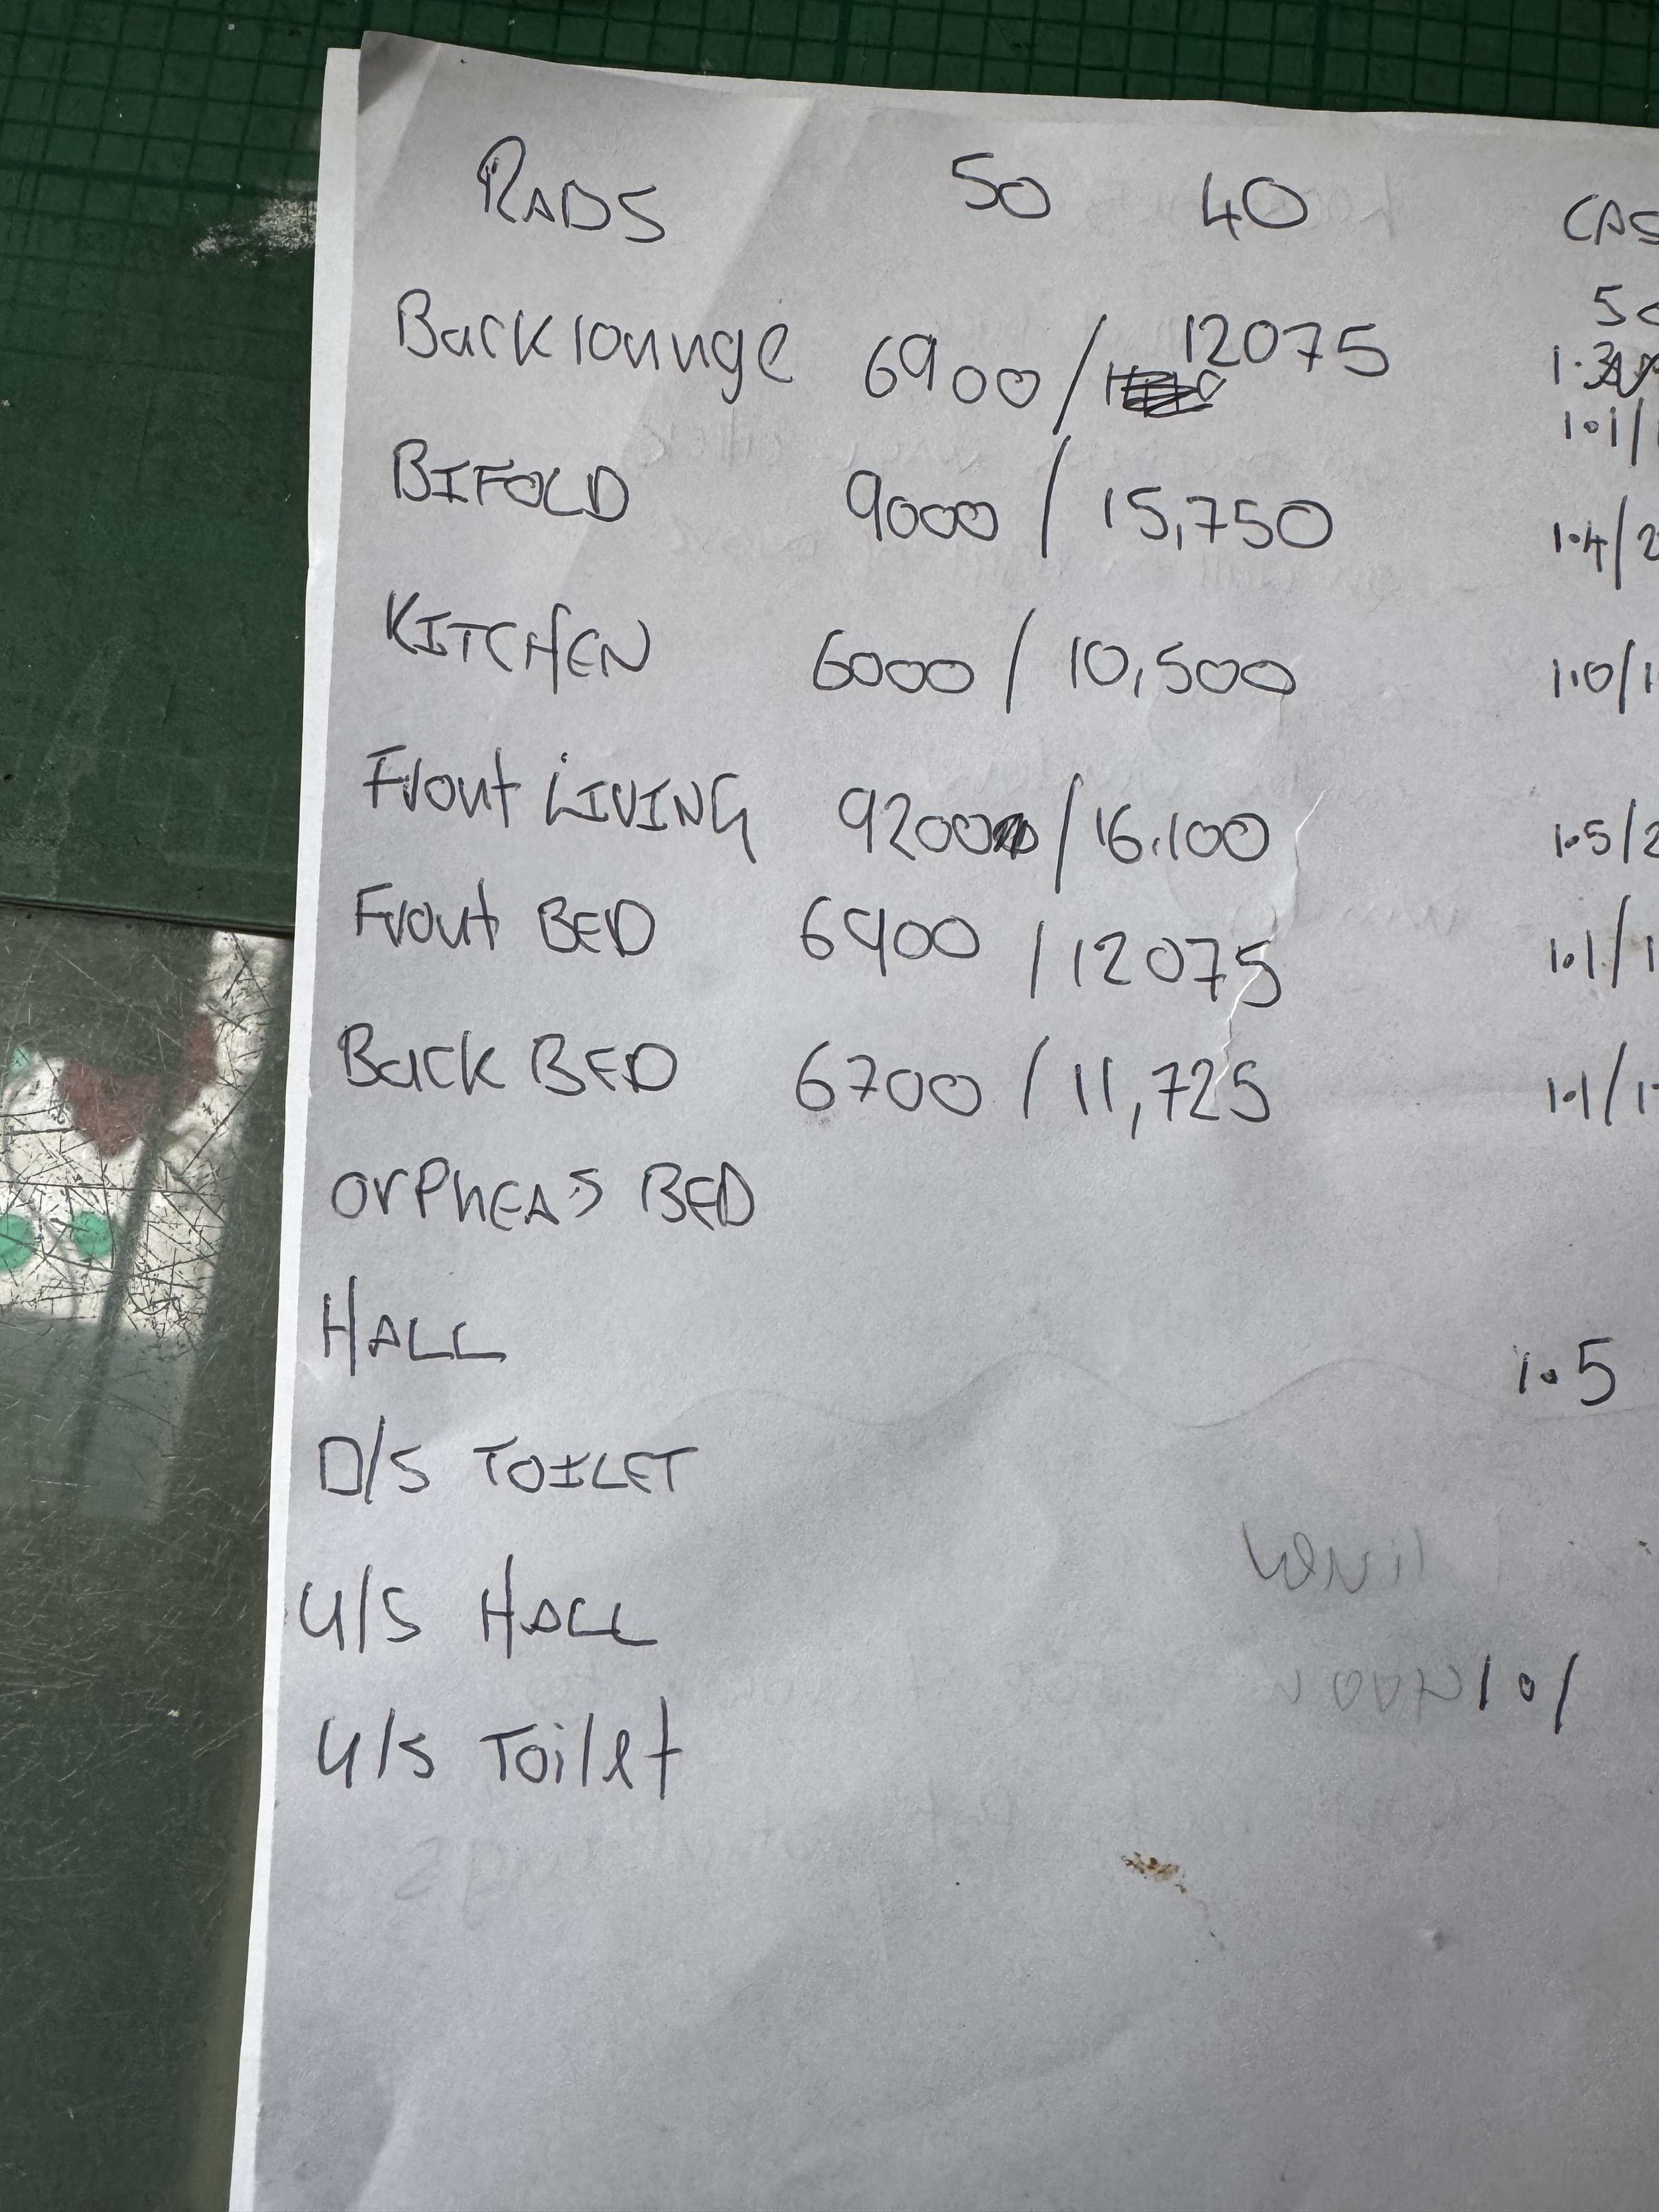 RADS 50 40 CAS
Back lounge 6900 / 12075 50
1.1/1
BIFOLD 9000 / 15,750 1.4/2
KITCHEN 6000 / 10,500 1.0/1.
Front LIVING 9200 / 16,100 1.5/2
Front BED 6900 / 12075 1.1/1
Back BED 6700 / 11,725 1.1/1
OrPhEAS BED
HALL 1.5
D/S TOILET
U/S HALL
1.1
U/S Toilet